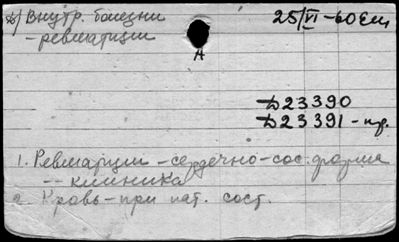 д) Внутр. болезни 25/VI-60
-ревматизм
А
Д23390
Д23391-пр.
1. Ревматизм -сердечно-сос. форма
-- клиника
2. Кровь-при пат. сост.